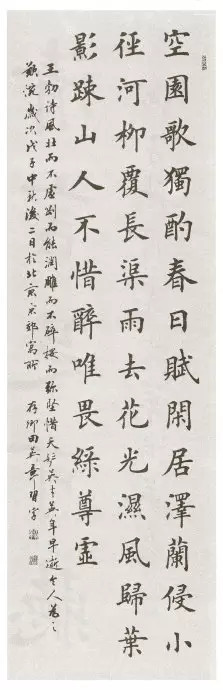 空園歌獨酌春日賦閑居澤蘭侵小
徑河柳覆長渠雨去花光濕風歸葉
影疎山人不惜醉唯畏綠尊虛
王勃诗風壯而不虛剛而能潤雕而不碎按而弥堅惜天妒英才英年早逝令人為之
歎浣歲次戊子中秋後二日於北京京郊寓所 存卿田英章習字